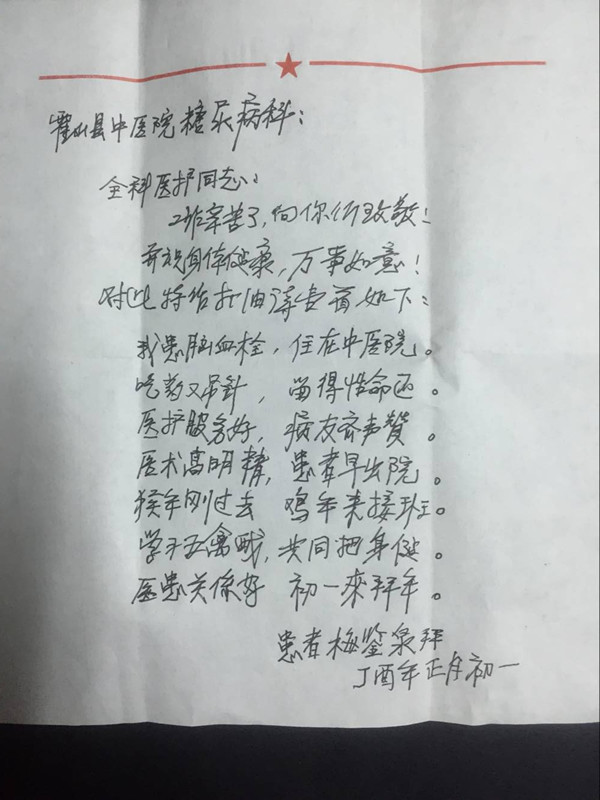 霍山县中医院糖尿病科：
全科医护同志：
工作辛苦了，向你们致敬！
并祝身体健康，万事如意！
对此特作打油诗壹首如下：
我患脑血栓，住在中医院。
吃药又吊针，留得性命还。
医护服务好，病友齐声赞。
医术高明精，患者早出院。
猴年刚过去 鸡年来接班。
学习五禽戏，共同把身健。
医患关係好 初一來拜年。
患者梅鉴泉拜
丁酉年正月初一